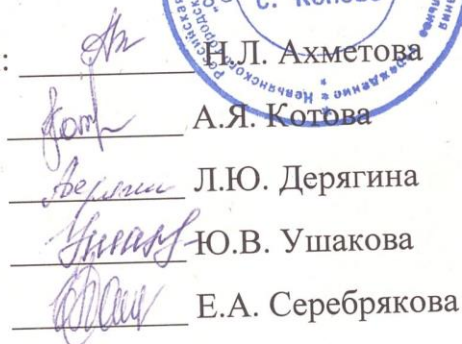 с. Конево
: Н.Л. Ахметова
А.Я. Котова
Л.Ю. Дерягина
Ю.В. Ушакова
Е.А. Серебрякова